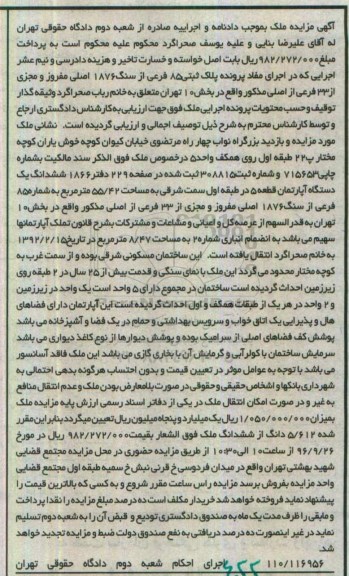 آگهی مزایده ملک بموجب دادنامه و اجراییه صادره از شعبه دوم دادگاه حقوقی تهران
له آقای علیرضا بنایی و علیه یوسف صحراگرد محکوم علیه محکوم است به پرداخت
مبلغ۹۸۲/۲۷۲/۰۰۰ریال بابت اصل خواسته و خسارت تاخیر و هزینه دادرسی و نیم عشر
اجرایی که در اجرای مفاد پرونده پلاک ثبتی۸۵ فرعی از سنگ۱۸۷۶ اصلی مفروز و مجزی
از۳۳ فرعی از اصلی مذکور واقع در بخش۱۰ تهران متعلق به خانم رباب صحراگرد وثیقه گذار
توقیف و حسب محتویات پرونده اجرایی ملک فوق جهت ارزیابی به کارشناس دادگستری ارجاع
و توسط کارشناس محترم به شرح ذیل توصیف اجمالی و ارزیابی گردیده است. نشانی ملک
مورد مزایده و بازدید بزرگراه نواب چهار راه مرتضوی خیابان کیوان کوچه خوش یاران کوچه
مختار پ۲۲ طبقه اول روی همکف واحد۵ درخصوص ملک فوق الذکر سند مالکیت بشماره
چاپی۷۱۵۶۵۳ و شماره ثبت۳۰۸۸۱۵ ثبت شده در صفحه ۲۲۹ دفتر۱۸۶۶ ششدانگ یک
دستگاه آپارتمان قطعه۵ در طبقه اول سمت شرقی به مساحت ۵۵/۴۲ مترمربع به شماره۸۵
فرعی از سنگ۱۸۷۶ اصلی مفروز و مجزی از ۳۳ فرعی از اصلی مذکور واقع در بخش۱۰
تهران به قدرالسهم از عرصه کل و اعیانی و مشاعات و مشترکات بشرح قانون تملک آپارتمانها
سهیم می باشد به انضمام انباری شماره۲ به مساحت ۸/۴۷ مترمربع در تاریخ۱۳۹۲/۲/۱۵
به خانم صحراگرد انتقال یافته است. این ساختمان مسکونی شرقی بوده و از سمت غرب به
کوچه مختار محدود می گردد این ملک با نمای سنگی و قدمت بیش از ۲۵ سال در ۲ طبقه روی
زیرزمین احداث گردیده است ساختمان در مجموع دارای ۵ واحد است یک واحد در زیرزمین
و ۲ واحد در هر یک از طبقات همکف و اول احداث گردیده است این آپارتمان دارای فضاهای
هال و پذیرایی یک اتاق خواب و سرویس بهداشتی و حمام در یک فضا و آشپزخانه می باشد
پوشش کف فضاهای اصلی از سرامیک بوده و پوشش دیوارها از نوع کاغذ دیواری می باشد
سرمایش ساختمان با کولر آبی و گرمایش آن با بخاری گازی می باشد این ملک فاقد آسانسور
می باشد با توجه به عوامل موثر در تعیین قیمت و بدون احتساب هرگونه بدهی احتمالی به
شهرداری بانکها و اشخاص حقیقی و حقوقی در صورت بلامعارض بودن ملک و عدم انتقال منافع
به غیر و در صورت امکان انتقال ملک در یکی از دفاتر اسناد رسمی ارزش پایه مزایده ملک
بمیزان۱/۰۵۰/۰۰۰/۰۰۰ریال یک میلیارد و پنجاه میلیون ریال تعیین میگردد بنابراین مقرر
شده ۵/۶۱۲ دانگ از ششدانگ ملک فوق الشعار بقیمت۹۸۲/۲۷۲/۰۰۰ ریال در مورخ
۹۶/۹/۲۶ از ساعت۱۰ الی۱۰:۳۰ از طریق مزایده حضوری در محل مزایده مجتمع قضایی
شهید بهشتی تهران واقع در میدان فردوسی خ قرنی نبش خ سمیه طبقه اول مجتمع قضایی
واحد مزایده بفروش برسد مزایده راس ساعت مقرر شروع و به کسی که بالاترین قیمت را
پیشنهاد نماید فروخته خواهد شد خریدار مکلف است ده درصد مبلغ مزایده را نقدا پرداخت
و مابقی را ظرف مدت یک ماه به صندوق دادگستری تودیع و قبض آن را به شعبه دوم تسلیم
نماید در غیر اینصورت ده درصد دریافتی به نفع صندوق دولت ضبط و مزایده تجدید خواهد
شد.
۱۱۰/۱۱۶۹۵۶ اجرای احکام شعبه دوم دادگاه حقوقی تهران